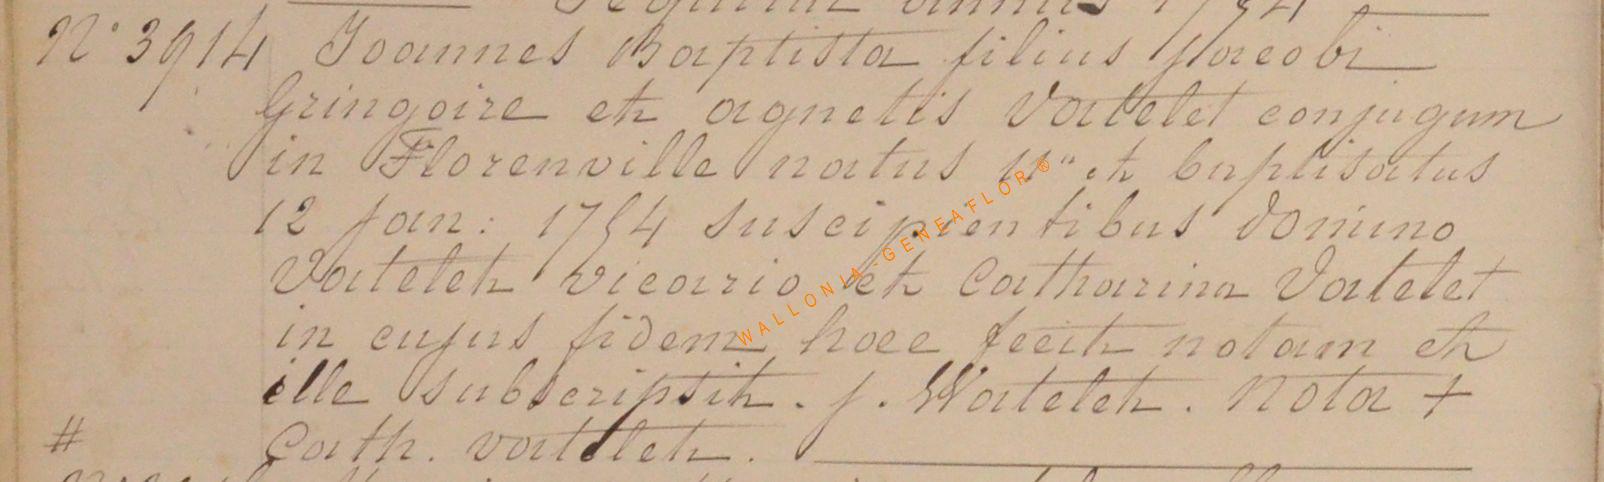 Sequuntur annus 1754
N° 3914 Joannes Baptista filius Jacobi
Gringoire et agnetis Vatelet conjugum
in Florenville natus 11ª et baptisatus
12 jan: 1754 suscipientibus domino
Vatelet vicario et Catharina Vatelet
in cujus fidem haec fecit notam et
ille subscripsit. j. Watelet. nota +
# Cath. vatelet.
WALLONIA-GENEAFLOR®